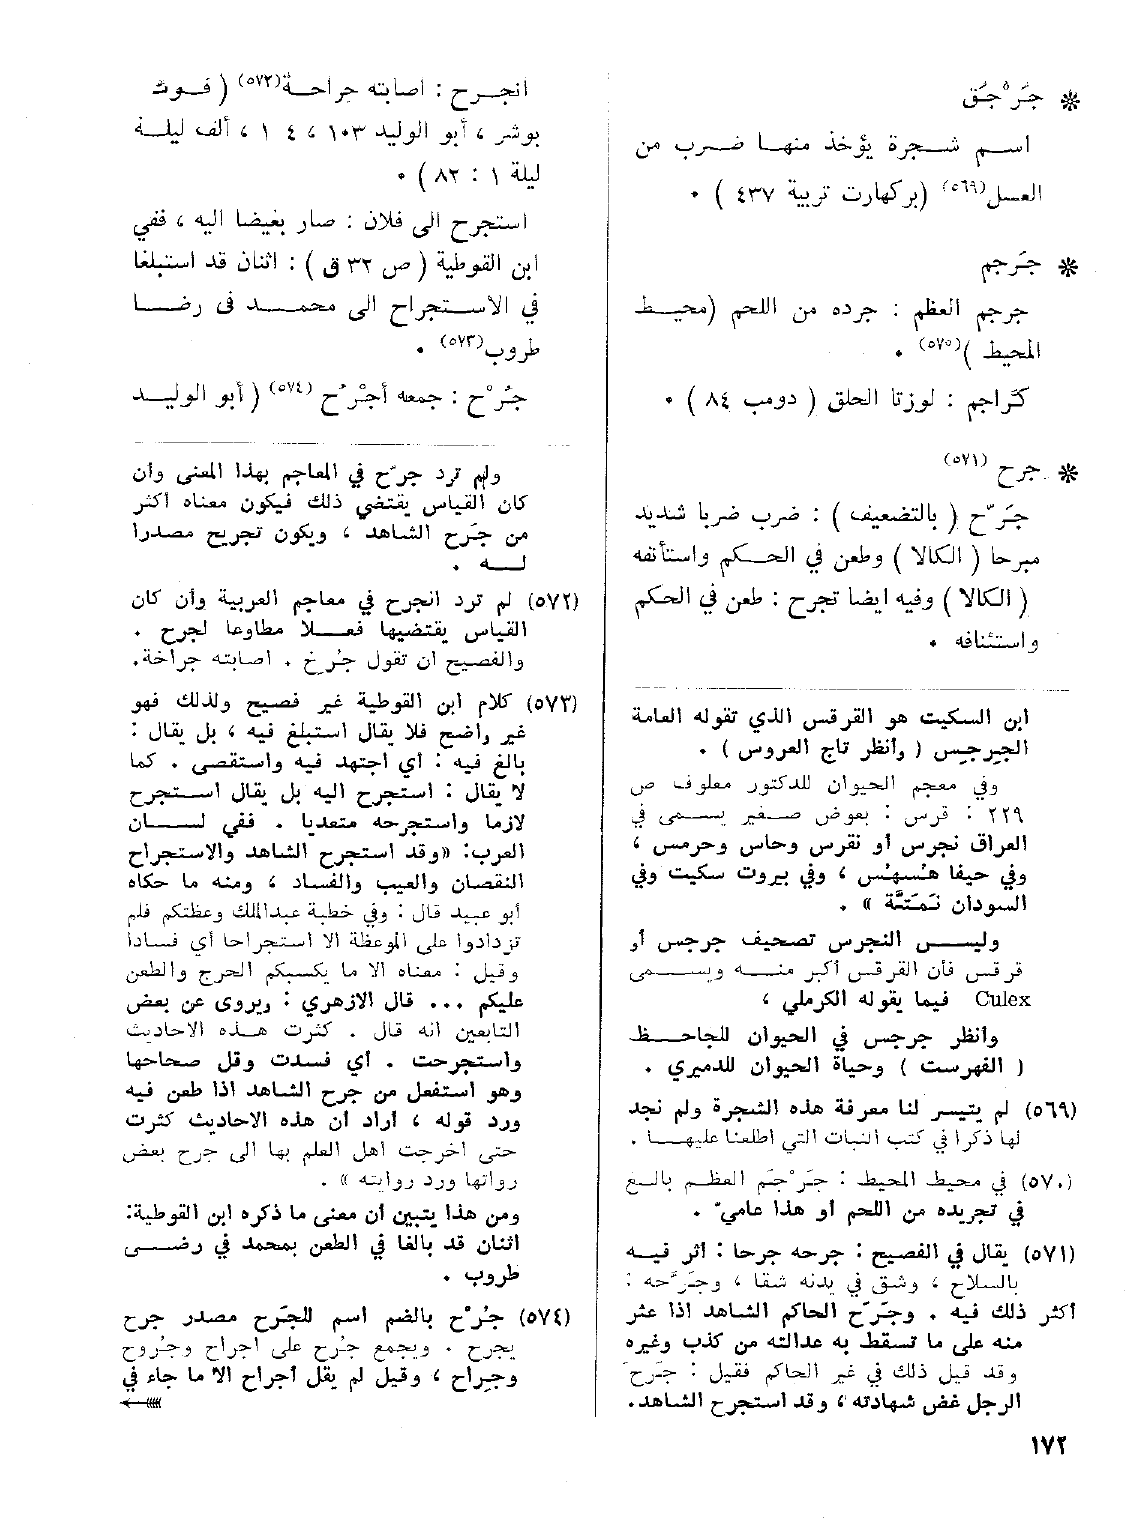 * جَرْجَق
اسم شجرة يؤخذ منها ضرب من
العسل(٥٦٩) (بركهارت تربية ٤٣٧ ) .
* جَرجم
جرجم العظم : جرده من اللحم (محيط
المحيط )(٥٧٠) .
كَراجم : لوزتا الحلق ( دومب ٨٤ ) .
* جرح (٥٧١)
جَرّح ( بالتضعيف ) : ضرب ضربا شديد
مبرحا ( الكالا ) وطعن في الحكم واستأنفه
( الكالا ) وفيه ايضا تجرح : طعن في الحكم
واستئنافه .
ابن السكيت هو القرقس الذي تقوله العامة
الجِرجِس ( وأنظر تاج العروس ) .
وفي معجم الحيوان للدكتور معلوف ص
٢٢٩ : قرس : بعوض صغير يسمى في
العراق نجرس أو نقرس وحاس وحرمس ،
وفي حيفا هسهس ، وفي بيروت سكيت وفي
السودان نمتة » .
وليس النجرس تصحيف جرجس أو
قرقس فأن القرقس أكبر منه ويسمى
Culex فيما يقوله الكرملي ،
وأنظر جرجس في الحيوان للجاحظ
( الفهرست ) وحياة الحيوان للدميري .
(٥٦٩) لم يتيسر لنا معرفة هذه الشجرة ولم نجد
لها ذكرا في كتب النبات التي اطلعنا عليها .
(٥٧٠) في محيط المحيط : جَرْجَم العظم بالغ
في تجريده من اللحم أو هذا عامي .
(٥٧١) يقال في الفصيح : جرحه جرحا : اثر فيه
بالسلاح ، وشق في بدنه شقا ، وجَرّحه :
أكثر ذلك فيه . وجَرّح الحاكم الشاهد اذا عثر
منه على ما تسقط به عدالته من كذب وغيره
وقد قيل ذلك في غير الحاكم فقيل : جَرَح
الرجل غض شهادته ، وقد استجرح الشاهد.
انجرح : اصابته جراحة(٥٧٢) ( فوك
بوشر ، أبو الوليد ١٠٣ ، ٤ ١ ، ألف ليلة
ليلة ١ : ٨٢ ) .
استجرح الى فلان : صار بغيضا اليه ، ففي
ابن القوطية ( ص ٣٢ ق ) : اثنان قد استبلغا
في الاستجراح الى محمد فى رضا
طروب(٥٧٣) .
جُرْح : جمعه أجْرُح (٥٧٤) ( أبو الوليد
ولم ترد جرّح في المعاجم بهذا المعنى وأن
كان القياس يقتضي ذلك فيكون معناه أكثر
من جَرح الشاهد ، ويكون تجريح مصدرا
له .
(٥٧٢) لم ترد انجرح في معاجم العربية وأن كان
القياس يقتضيها فعلا مطاوعا لجرح .
والفصيح ان تقول جُرِح . اصابته جراحة.
(٥٧٣) كلام ابن القوطية غير فصيح ولذلك فهو
غير واضح فلا يقال استبلغ فيه ، بل يقال :
بالغ فيه : أي اجتهد فيه واستقصى . كما
لا يقال : استجرح اليه بل يقال استجرح
لازما واستجرحه متعديا . ففي لسان
العرب: «وقد استجرح الشاهد والاستجراح
النقصان والعيب والفساد ، ومنه ما حكاه
أبو عبيد قال : وفي خطبة عبدالملك وعظتكم فلم
تزدادوا على الموعظة الا استجراحا أي فسادا
وقيل : معناه الا ما يكسبكم الجرح والطعن
عليكم ... قال الازهري : ويروى عن بعض
التابعين أنه قال . كثرت هذه الاحاديث
واستجرحت . أي فسدت وقل صحاحها
وهو استفعل من جرح الشاهد اذا طعن فيه
ورد قوله ، أراد أن هذه الاحاديث كثرت
حتى احرجت أهل العلم بها الى جرح بعض
رواتها ورد روايته » .
ومن هذا يتبين أن معنى ما ذكره ابن القوطية:
اثنان قد بالغا في الطعن بمحمد في رضى
طروب .
(٥٧٤) جُرْح بالضم اسم للجَرح مصدر جرح
يجرح . ويجمع جُرح على أجراح وجُروح
وجراح ، وقيل لم يقل أجراح الا ما جاء في
١٧٢